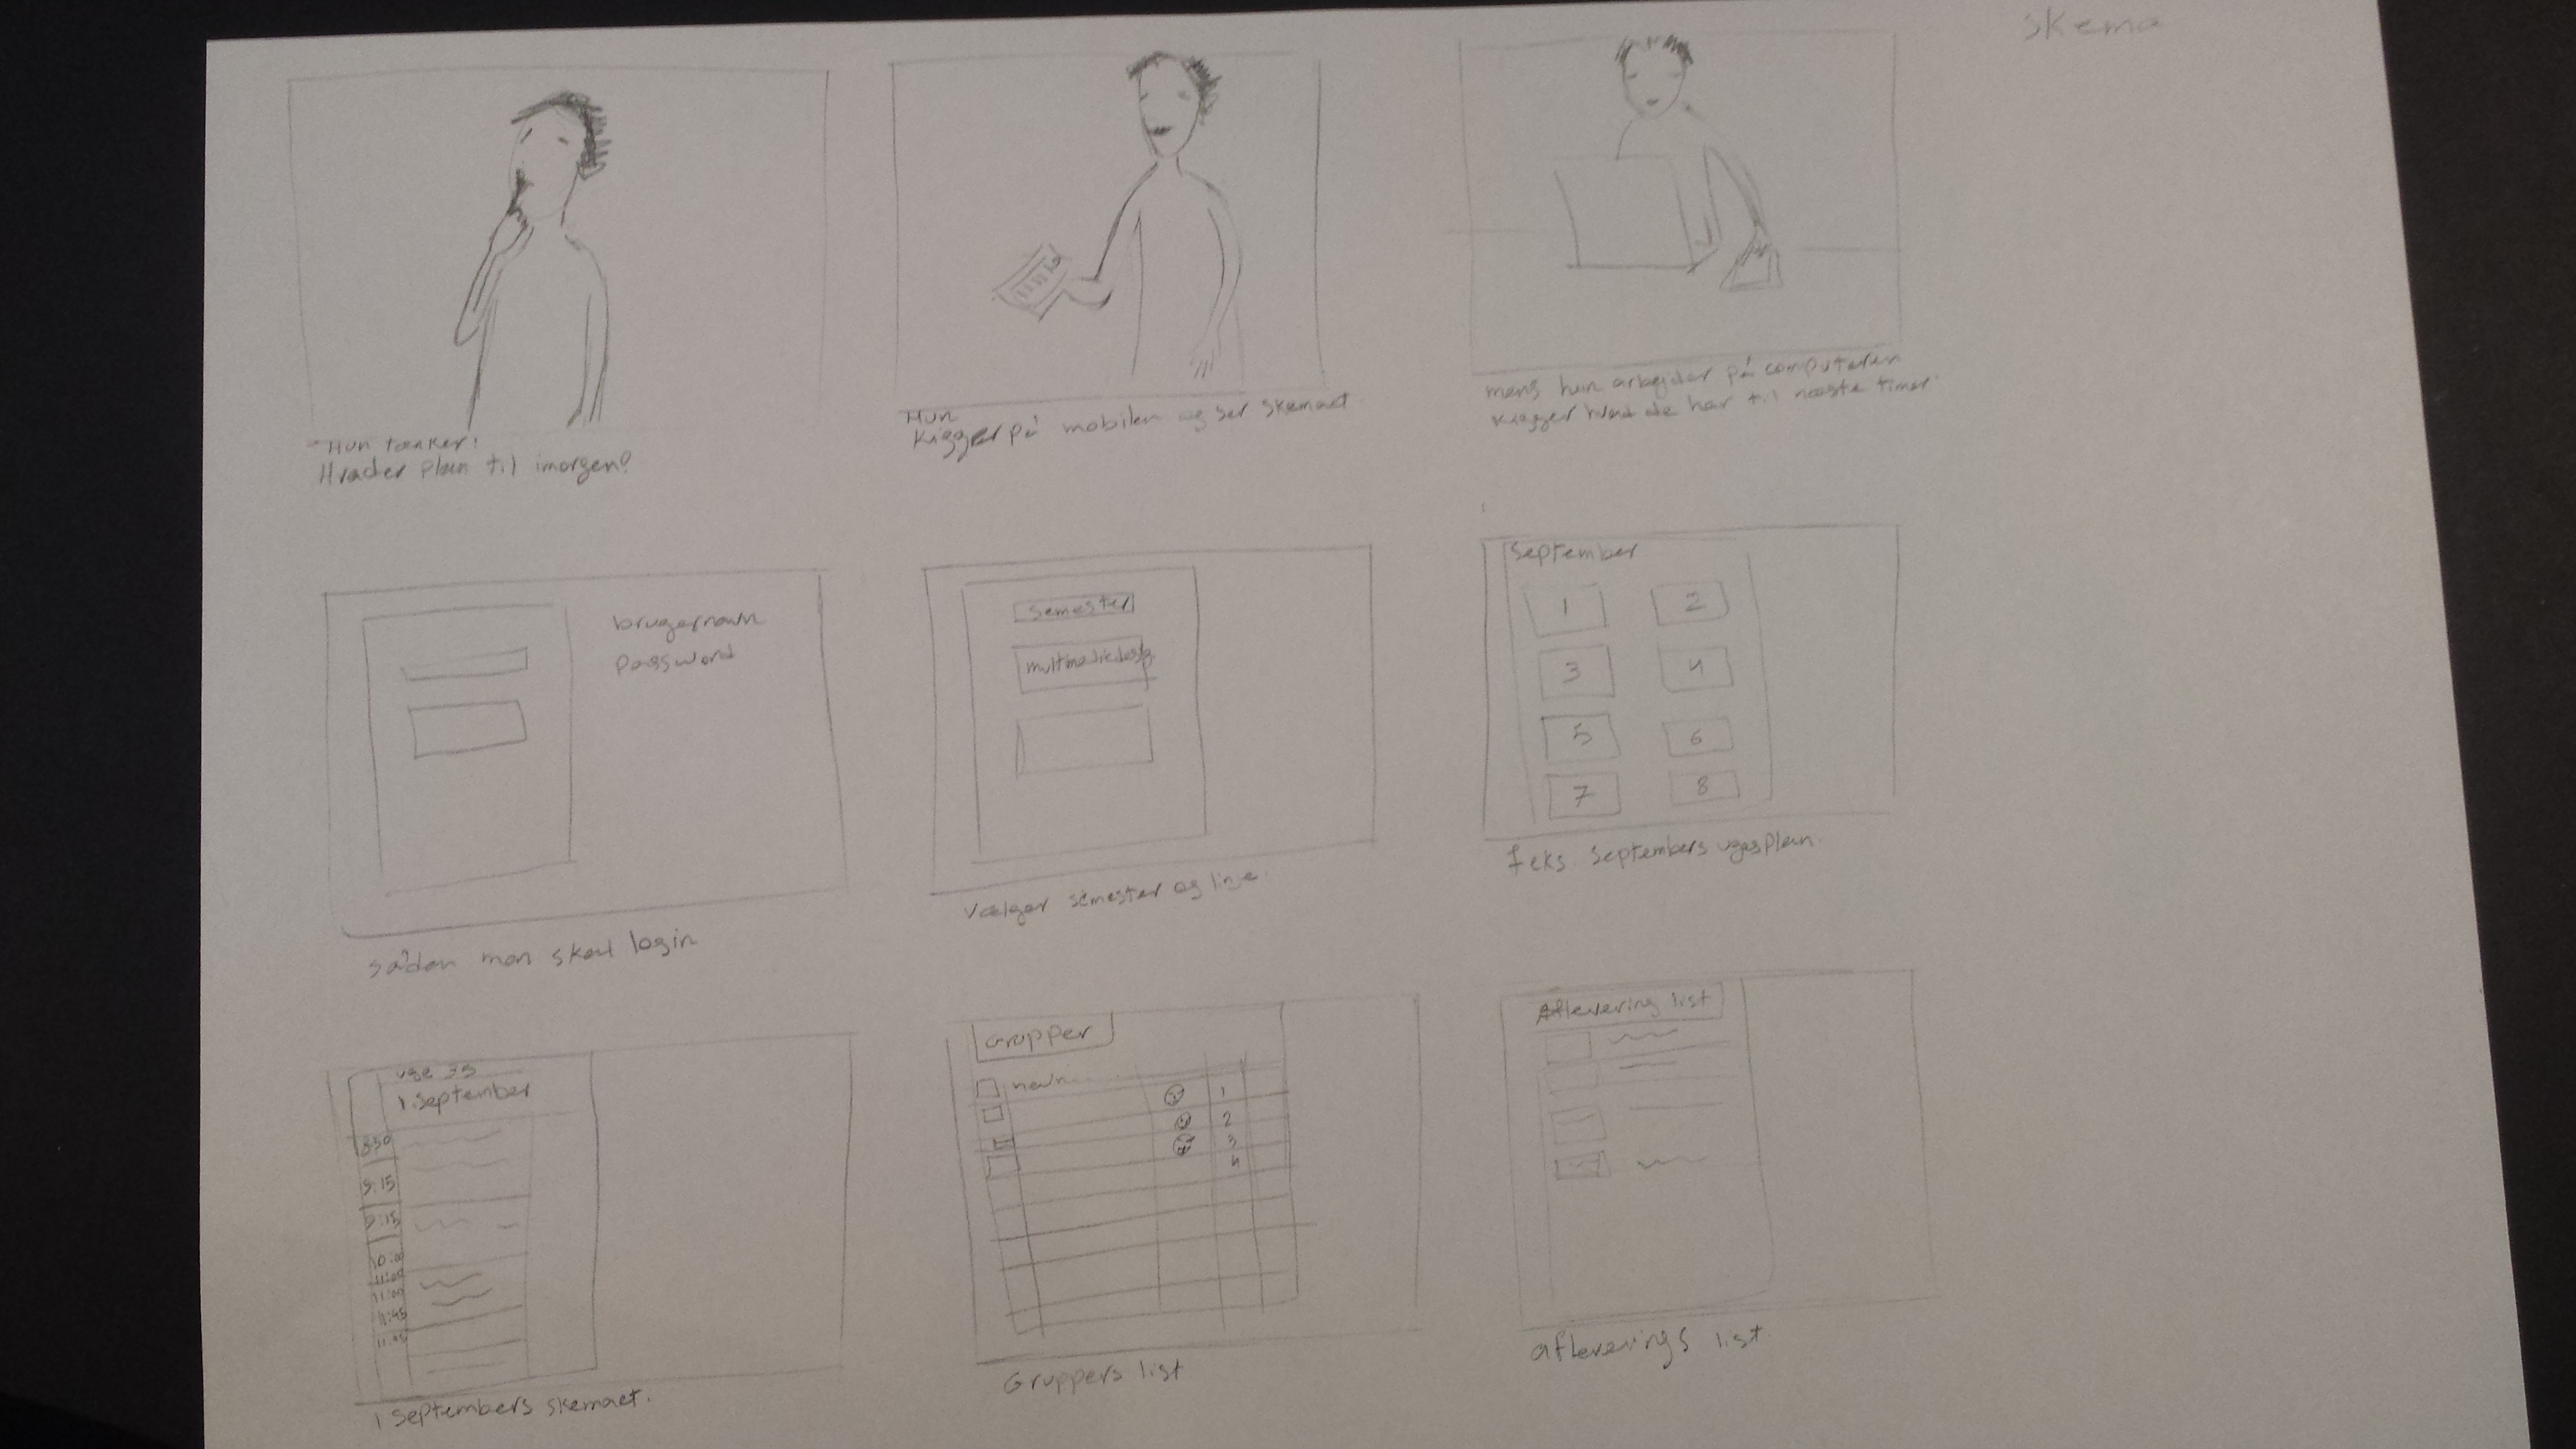 skema
"Hun tænker!
Hvader plan til imorgen?
Hun
kigger på mobilen og ser skemaet.
mens hun arbejder på computeren
kigger hvad de har til næste timer.
brugernavn
password
sådan man skal login
semester
multimediedesig
Vælger semester og linje.
September
1 2
3 4
5 6
7 8
feks. Septembers ugesplan.
uge 35
1.september
8:30
9:15
9:15
10:00
11:00
11:00
11:45
11:45
1 septembers skemaet.
Grupper
navn
1
2
3
4
Gruppers list
Aflevering list
afleverings list